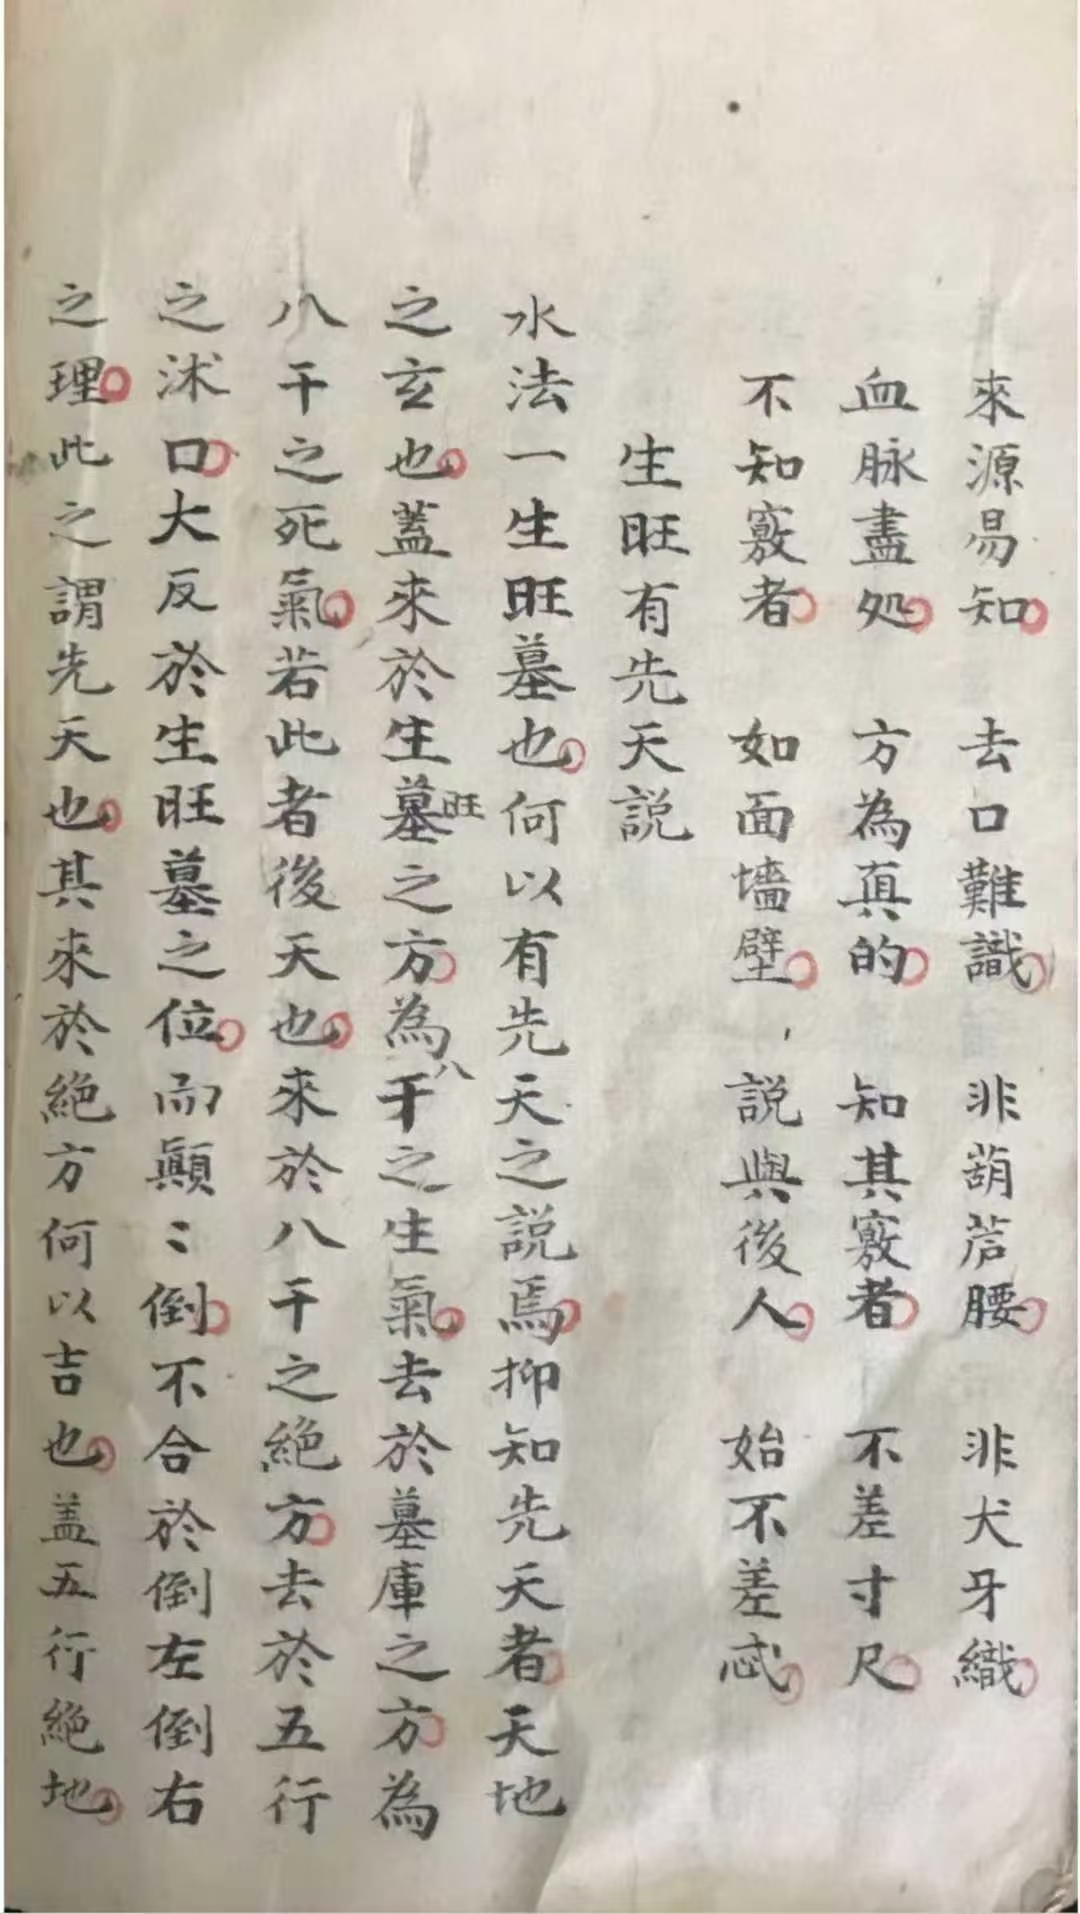 來源易知 去口難識 非葫芦腰 非犬牙織
血脉盡処 方為真的 知其竅者 不差寸尺
不知竅者 如面墻壁 說與後人 始不差忒
生旺有先天説
水法一生旺墓也何以有先天之説焉抑知先天者天地
之玄也蓋來於生旺墓之方為八干之生氣去於墓庫之方為
八干之死氣若此者後天也來於八干之絕方去於五行
之沭口大反於生旺墓之位而顚〻倒不合於倒左倒右
之理此之謂先天也其來於絕方何以吉也盖五行絕地